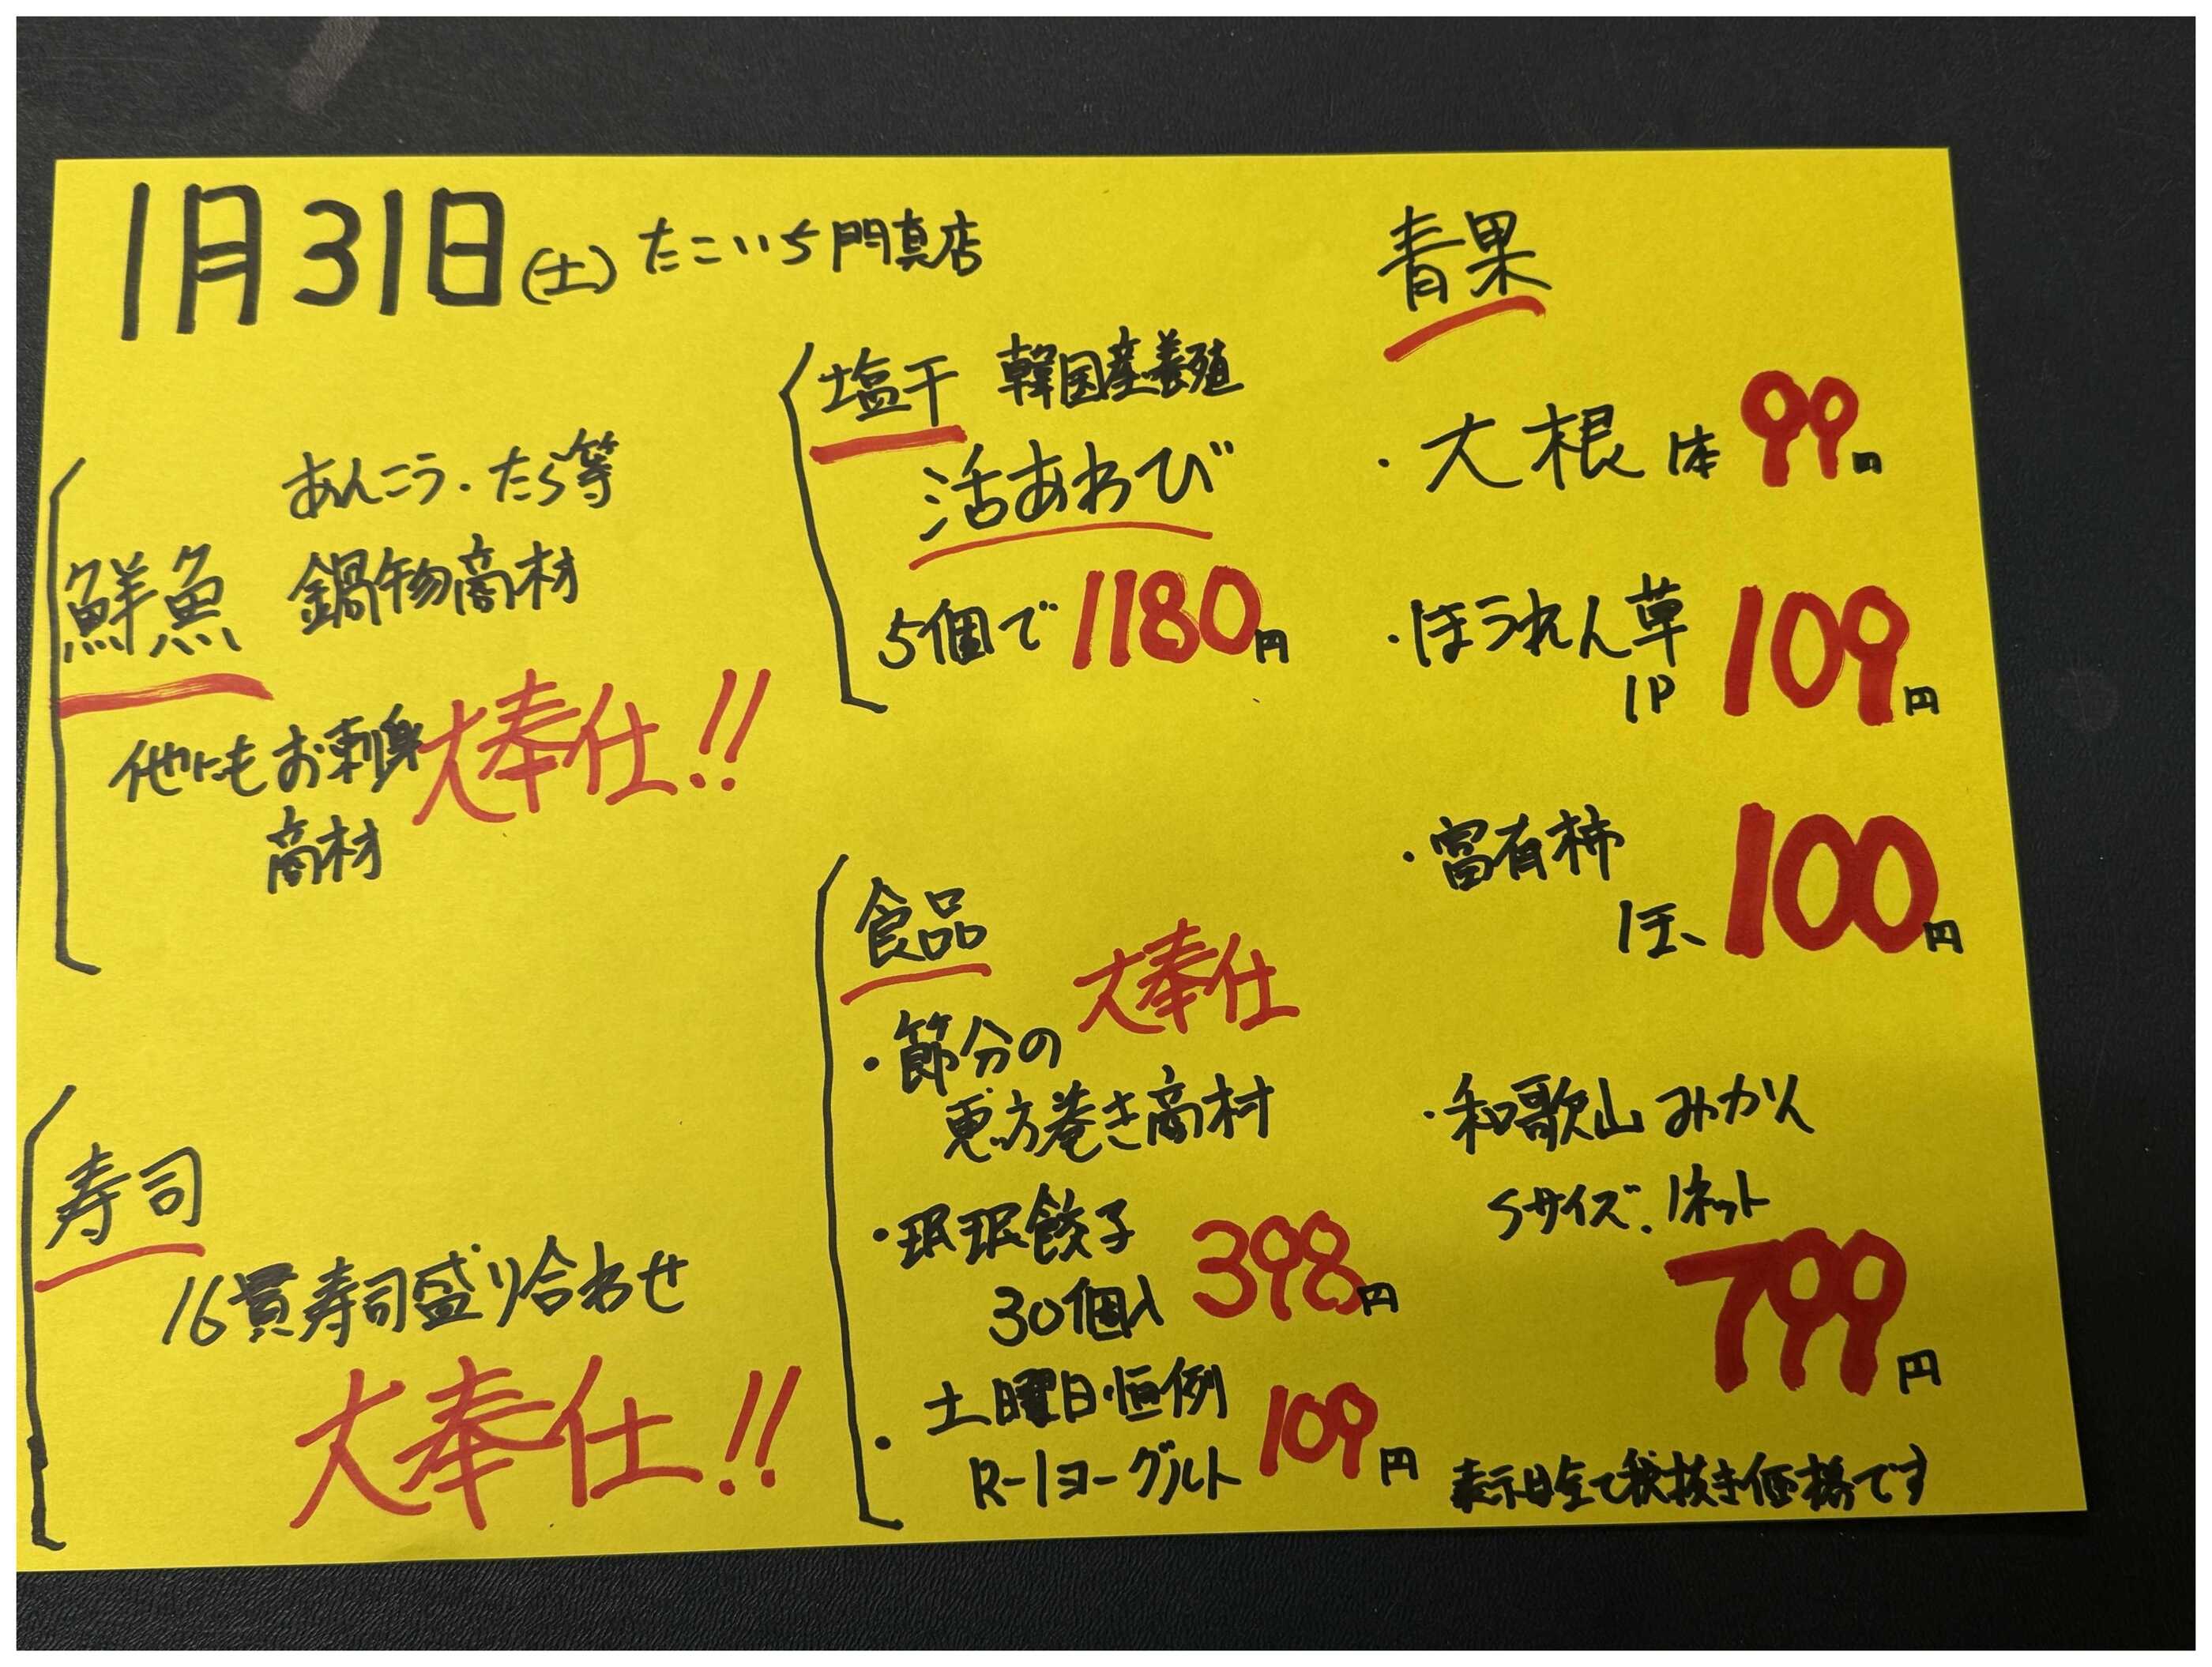 1月31日(土) たこいち門真店
鮮魚
あんこう・たら等
鍋物商材
他にもお刺身
商材
大奉仕!!
寿司
16貫寿司盛り合わせ
大奉仕!!
塩干 韓国産養殖
活あわび
5個で 1180円
食品
大奉仕
・節分の
恵方巻き商材
・珉珉餃子
30個入 398円
・土曜日恒例
R-1ヨーグルト 109円
青果
・大根 1本 99円
・ほうれん草
1P 109円
・富有柿
1玉 100円
・和歌山みかん
Sサイズ. 1ネット
799円
表示は全て税抜き価格です